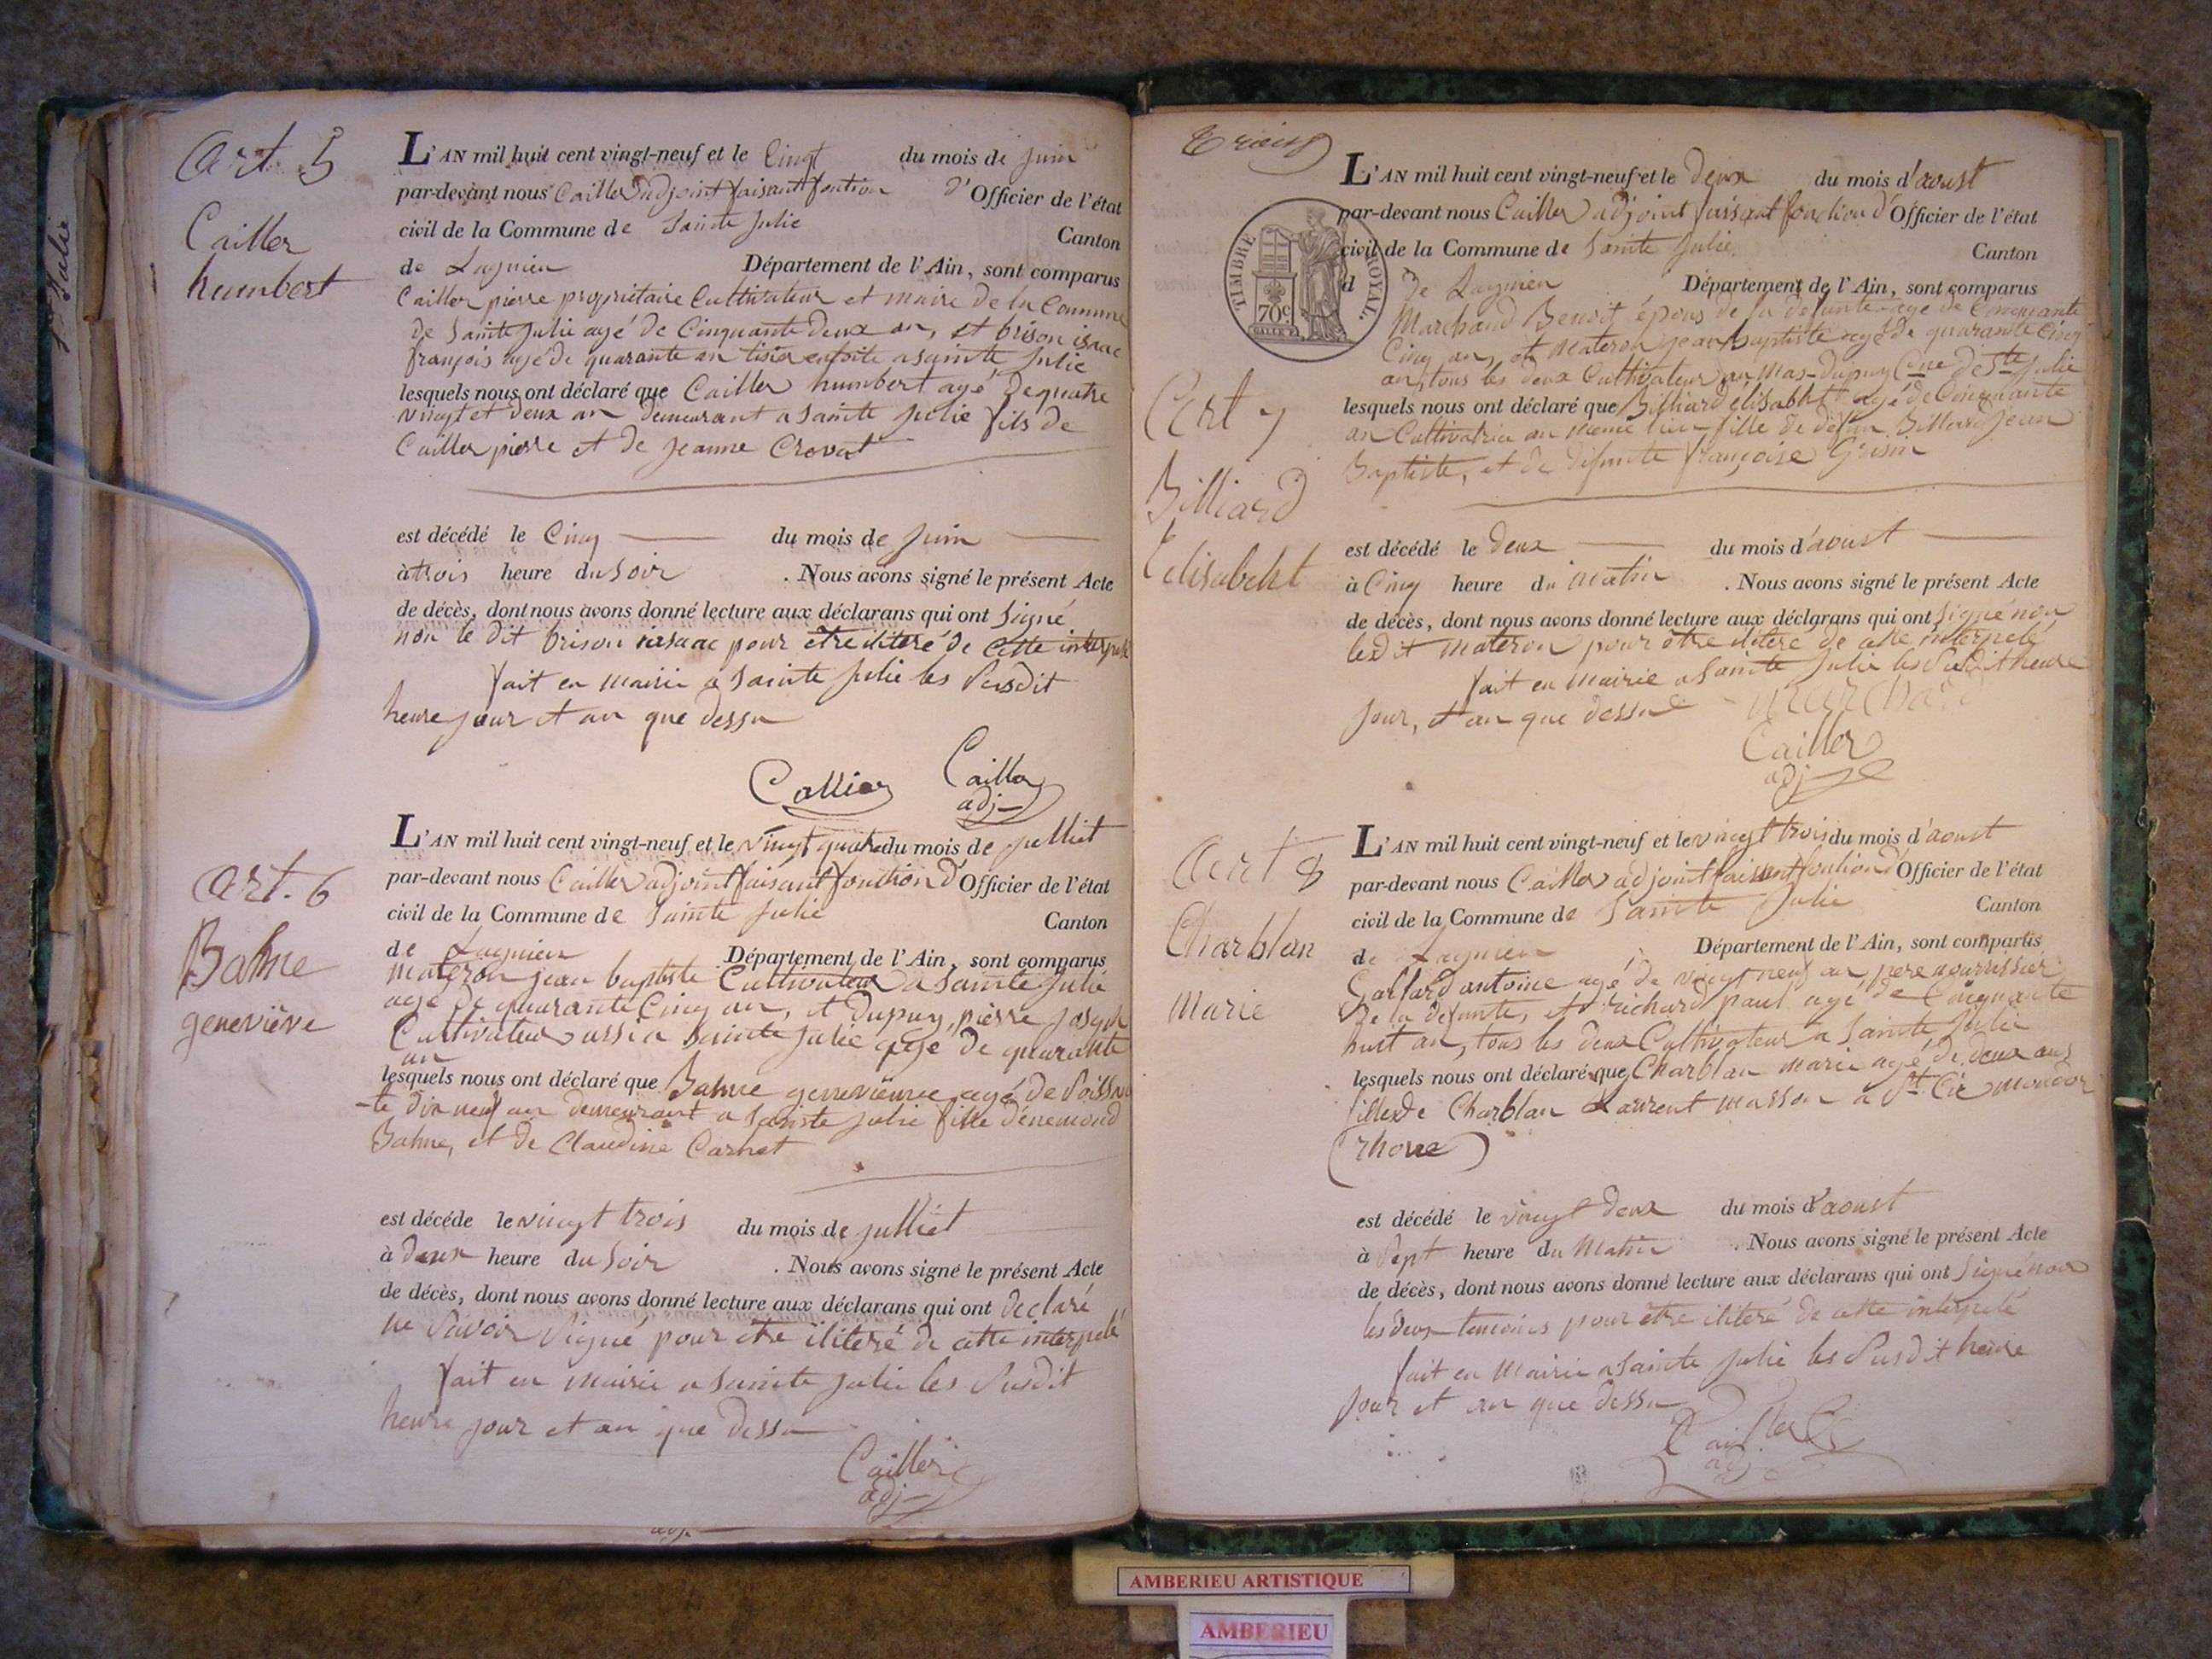 Ste Julie
Art. 5
Cailler
humbert
L'AN mil huit cent vingt-neuf et le Cinq du mois de juin
par-devant nous Cailler adjoint faisant fontion d'Officier de l'état
civil de la Commune de Sainte Julie Canton
de Lagnieu Département de l'Ain, sont comparus
Cailler pierre propriétaire Cultivateur et maire de la Commune
de Sainte Julie agé de Cinquante deux an, et brison isaac
françois agé de quarante an a sainte Julie
lesquels nous ont déclaré que Cailler humbert agé de quatre
vingt et deux an demeurant a Sainte Julie fils de
Cailler pierre et de Jeanne Crovat
est décédé le Cinq du mois de juin
à trois heure du Soir . Nous avons signé le présent Acte
de décès, dont nous avons donné lecture aux déclarans qui ont Signé
non le dit brison isaac pour être iliteré de cette interpelé
fait en mairie a Sainte Julie les Susdit
heure jour et an que dessu
Callier Cailler
adj
art. 6
Bahne
geneviève
L'AN mil huit cent vingt-neuf et le vingt quatre du mois de julliet
par-devant nous Cailler adjoint faisant fonction d'Officier de l'état
civil de la Commune de Sainte Julie Canton
de Lagnieu Département de l'Ain, sont comparus
materon jean baptiste Cultivateur a Sainte Julie
agé de quarante Cinq an, et Dupuy pierre joseph
Cultivateur ussi a Sainte Julie agé de quarante
an
lesquels nous ont déclaré que Bahne genevieuve agé de Soissan
-te dix neuf an demeurant a Sainte Julie fille d'énemond
Bahne, et de Claudine Carnet
est décéde le vingt trois du mois de julliet
à deux heure du Soir . Nous avons signé le présent Acte
de décès, dont nous avons donné lecture aux déclarans qui ont declaré
ne Savoir Signé pour être iliteré de cette interpelé
fait en mairie a Sainte Julie les Susdit
heure jour et an que dessu
Cailler
adj
Trois
TIMBRE ROYAL.
70c
L'AN mil huit cent vingt-neuf et le deux du mois d'aoust
par-devant nous Cailler adjoint faisant fonction d'Officier de l'état
civil de la Commune de Sainte Julie Canton
d de Lagnieu Département de l'Ain, sont comparus
Marchand Benoit épous de la defunte agé de Cinquante
Cinq an, et materon jean baptiste agé de quarante Cinq
an, tous les deux Cultivateur au Mas-dupuy Cne de Ste Julie
lesquels nous ont déclaré que Billiard élisabeht agé de Cinquante
an Cultivatrice au meme lieu fille de defun Billiard Jean
Baptiste, et de defunte françoise Grisin
Art 7
Billiard
Elisabeht
est décédé le deux du mois d'aoust
à Cinq heure du Matin . Nous avons signé le présent Acte
de décès, dont nous avons donné lecture aux déclarans qui ont Signé non
ledit Materon pour être iliteré de cette interpelé
fait en Mairie a Sainte Julie les Susdit heure
jour, et an que dessu
Marchand
Cailler
adj
Art 8
Charblan
Marie
L'AN mil huit cent vingt-neuf et le vingt trois du mois d'aoust
par-devant nous Cailler adjoint faisant fontion d'Officier de l'état
civil de la Commune de Sainte Julie Canton
de Lagnieu Département de l'Ain, sont comparus
Gallard antoine agé de vingt neuf an pere nourrissier
de la defunte, et Richard paul agé de Cinquante
huit an, tous les deux Cultivateur a Sainte Julie
lesquels nous ont déclaré que Charblan Marie agé de deux ans
fille de Charblan Laurent masson a St Cir mondor
(rhone)
est décédé le vingt deux du mois d'aoust
à Sept heure du Matin . Nous avons signé le présent Acte
de décès, dont nous avons donné lecture aux déclarans qui ont Signé non
les deux temoins pour être iliteré de cette interpelé
fait en Mairie a Sainte Julie les Susdit heure
jour et an que dessu
Cailler
adj
AMBERIEU ARTISTIQUE
AMBERIEU